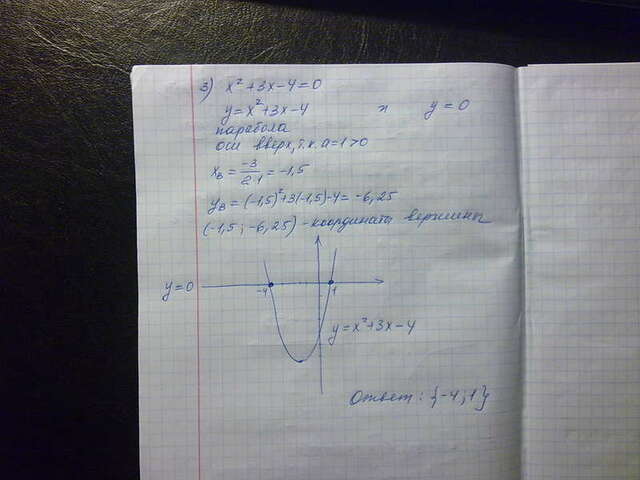 3) x² + 3x - 4 = 0
y = x² + 3x - 4 и y = 0
парабола
ош вверх, т.к. a = 1 > 0
x_в = -3/2·1 = -1,5
y_в = (-1,5)² + 3(-1,5) - 4 = -6,25
(-1,5; -6,25) - координаты вершины
y = 0
-4 1
y = x² + 3x - 4
Ответ: {-4; 1}